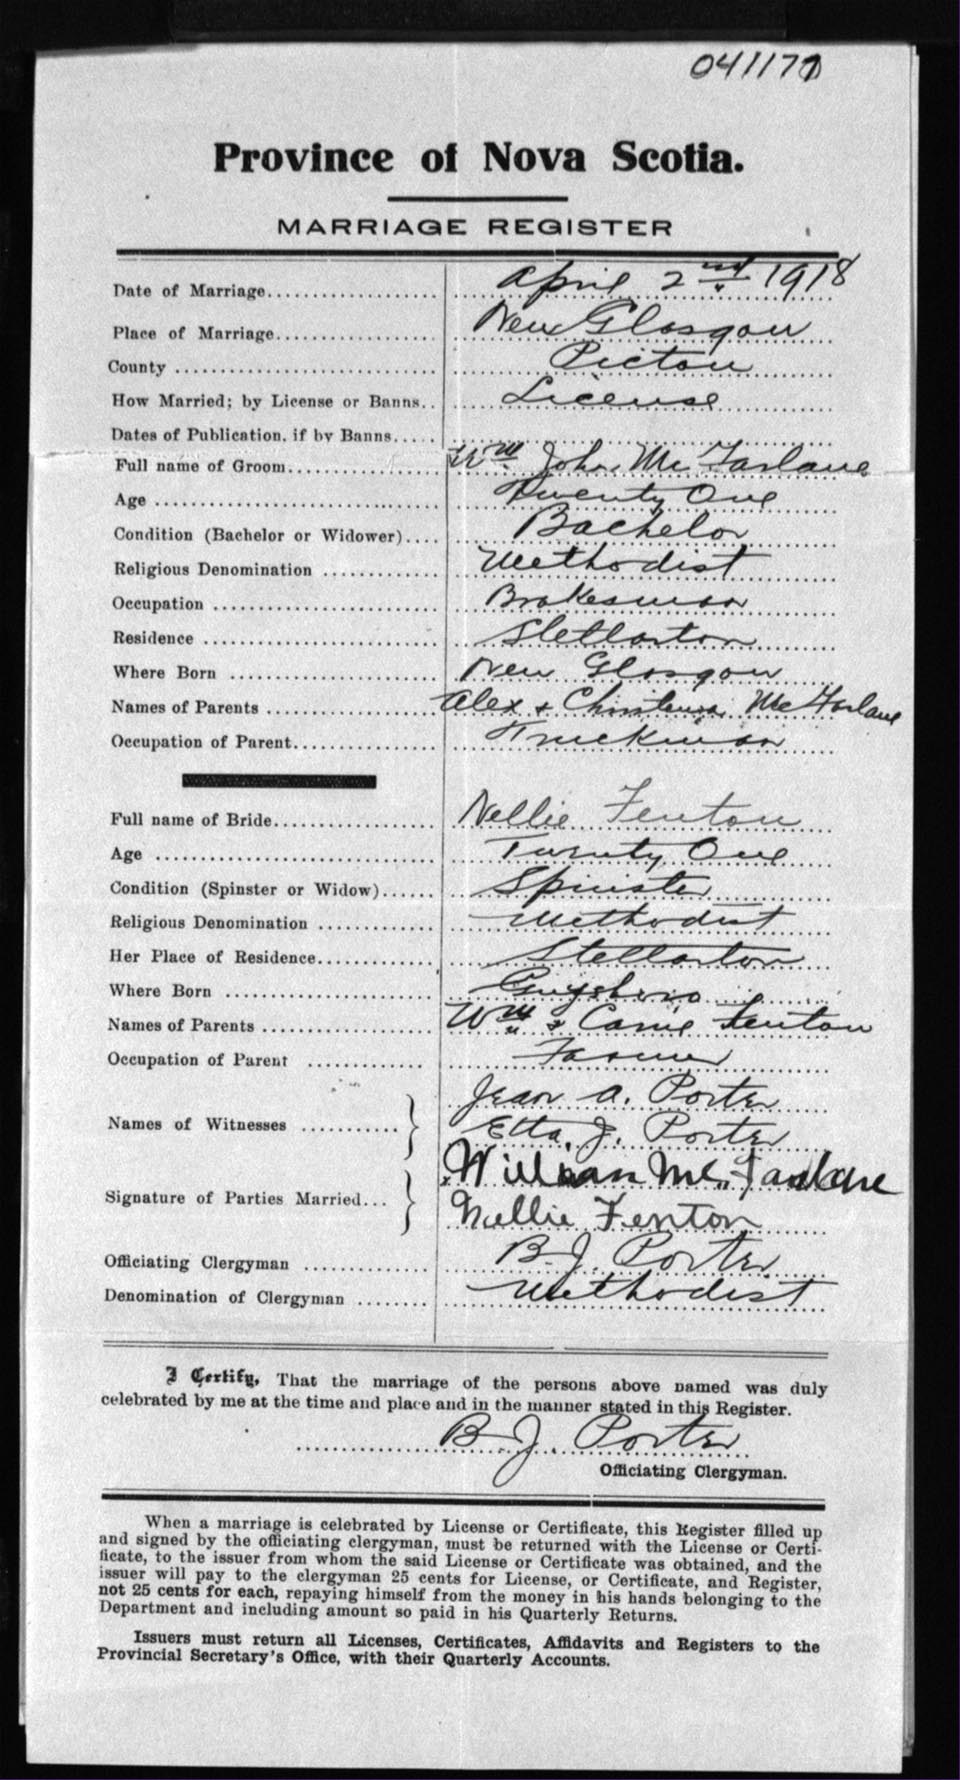 041177
Province of Nova Scotia.
MARRIAGE REGISTER
Date of Marriage.................. April 2nd 1918
Place of Marriage.................. New Glasgow
County .................. Pictou
How Married; by License or Banns.. License
Dates of Publication, if by Banns.....
Full name of Groom.................. Wm John McFarlane
Age .................. Twenty One
Condition (Bachelor or Widower).... Bachelor
Religious Denomination ............ Methodist
Occupation .................. Brakesman
Residence .................. Stellarton
Where Born .................. New Glasgow
Names of Parents .................. Alex & Christena McFarlane
Occupation of Parent............... Truckman
Full name of Bride.................. Nellie Fenton
Age .................. Twenty One
Condition (Spinster or Widow)...... Spinster
Religious Denomination ............ Methodist
Her Place of Residence............. Stellarton
Where Born .................. Guysboro
Names of Parents .................. Wm & Carrie Fenton
Occupation of Parent ............ Farmer
Names of Witnesses ........... } Jean A. Porter
Etta J. Porter
Signature of Parties Married... } William McFarlane
Nellie Fenton
Officiating Clergyman ............ B. J. Porter
Denomination of Clergyman ........ Methodist
I Certify, That the marriage of the persons above named was duly
celebrated by me at the time and place and in the manner stated in this Register.
B. J. Porter
Officiating Clergyman.
When a marriage is celebrated by License or Certificate, this Register filled up
and signed by the officiating clergyman, must be returned with the License or Certi-
ficate, to the issuer from whom the said License or Certificate was obtained, and the
issuer will pay to the clergyman 25 cents for License, or Certificate, and Register,
not 25 cents for each, repaying himself from the money in his hands belonging to the
Department and including amount so paid in his Quarterly Returns.
Issuers must return all Licenses, Certificates, Affidavits and Registers to the
Provincial Secretary's Office, with their Quarterly Accounts.